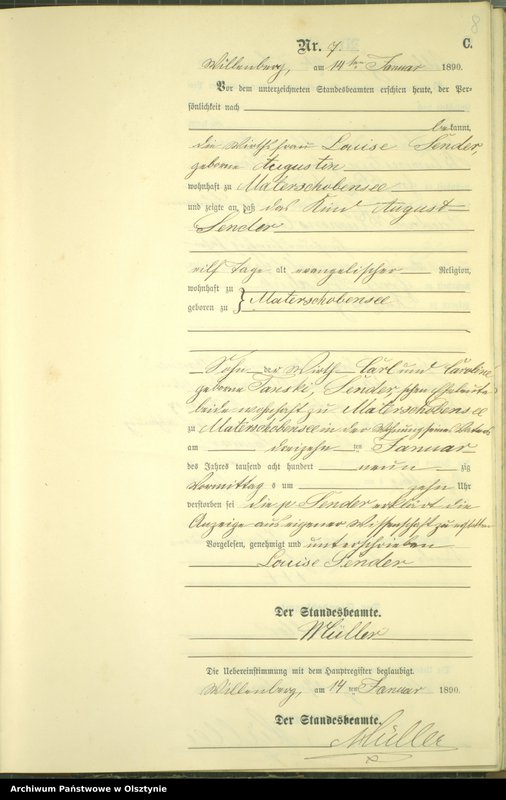 8
Nr. 7. C.
Willenberg, am 14ten Januar 1890.
Vor dem unterzeichneten Standesbeamten erschien heute, der Per-
sönlichkeit nach
bekannt,
die Wirthsfrau Louise Sender,
geborne Augustin
wohnhaft zu Materschobensee
und zeigte an, daß das Kind August
Sender
eilf Tage alt evangelischer Religion,
wohnhaft zu
geboren zu } Materschobensee
Sohn der Wirth Carl und Caroline
geborne Sender, schen Eheleute
beide wohnhaft zu Materschobensee
zu Materschobensee in der Wohnung seines Vaters
am dreizehn ten Januar
des Jahres tausend acht hundert neun zig
Vormittags um zehn Uhr
verstorben sei die p. Sender erklärt die
Anzeige aus eigener Wissenschaft zu erstatten
Vorgelesen, genehmigt und unterschrieben
Louise Sender
Der Standesbeamte.
Müller
Die Uebereinstimmung mit dem Hauptregister beglaubigt.
Willenberg, am 14 ten Januar 1890.
Der Standesbeamte.
Müller
Archiwum Państwowe w Olsztynie